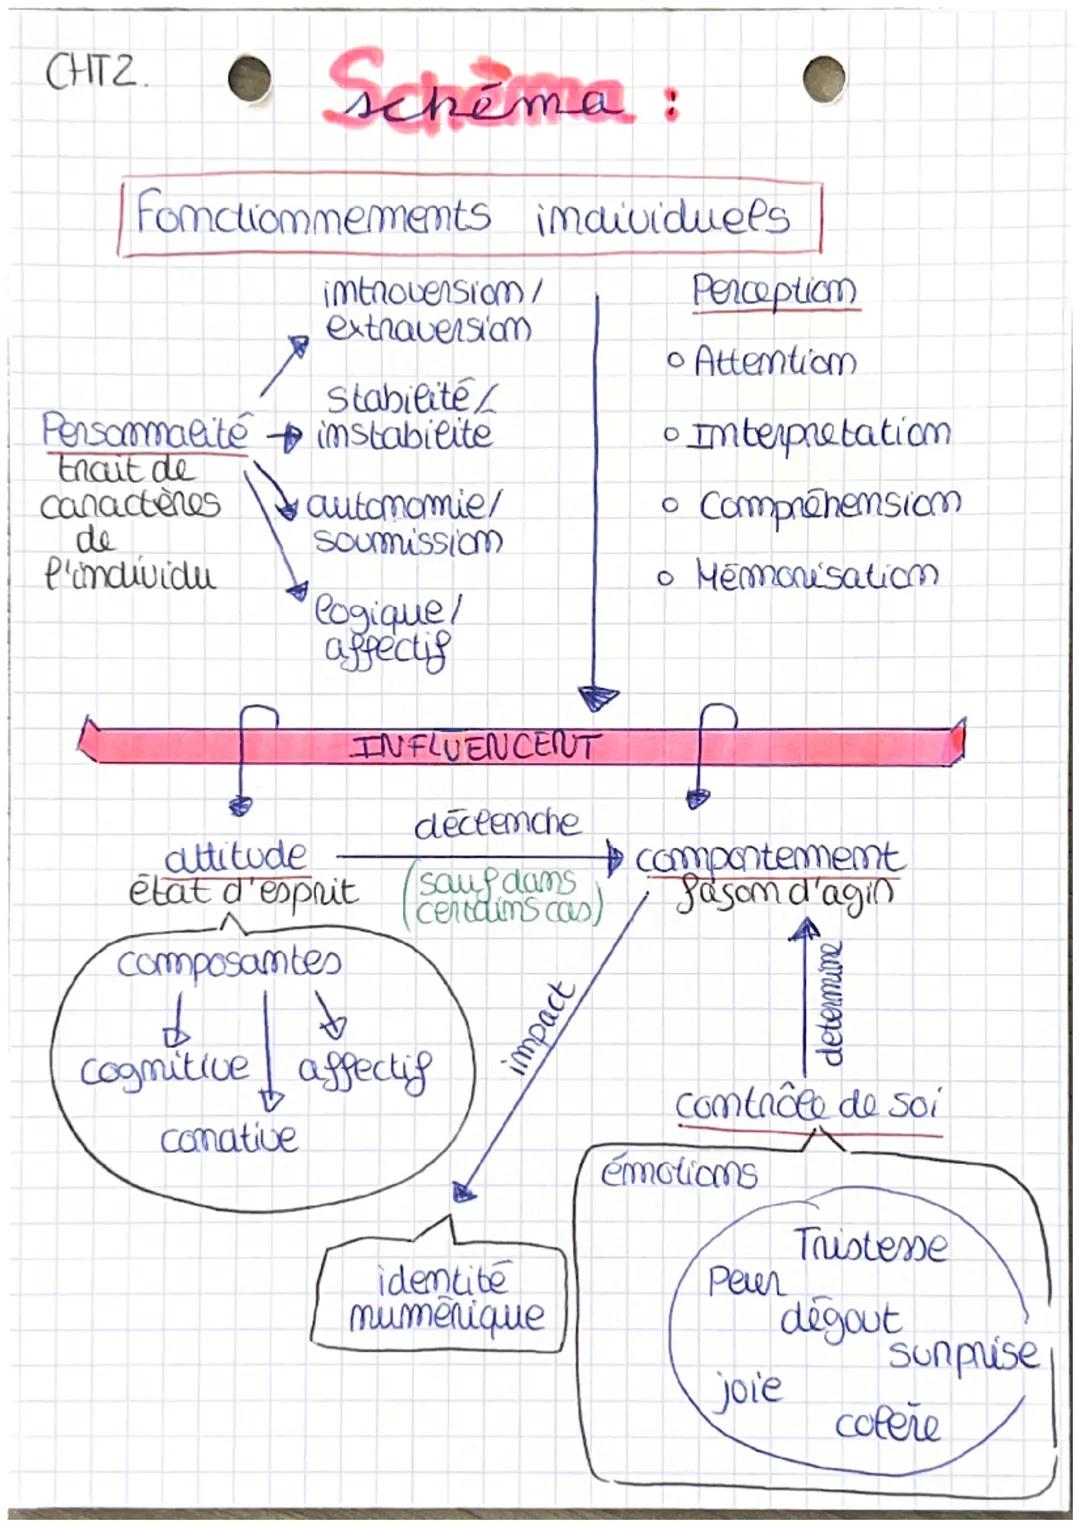 CHT2.
Schéma :
Fonctionnements individuels
introversion/
extraversion
stabilité/
instabilité
autonomie/
soumission
logique/
affectif
Personnalité
trait de
caractères
de
l'individu
Perception
o Attention
o Interprétation
o Compréhension
o Mémorisation
INFLUENCENT
attitude
état d'esprit
déclenche
(sauf dans
certains cas)
comportement
façom d'agir
composantes
cognitive
affectif
conative
impact
determine
contrôle de soi
identité
numérique
émotions
Tristesse
Peur
dégout
surprise
joie
colère